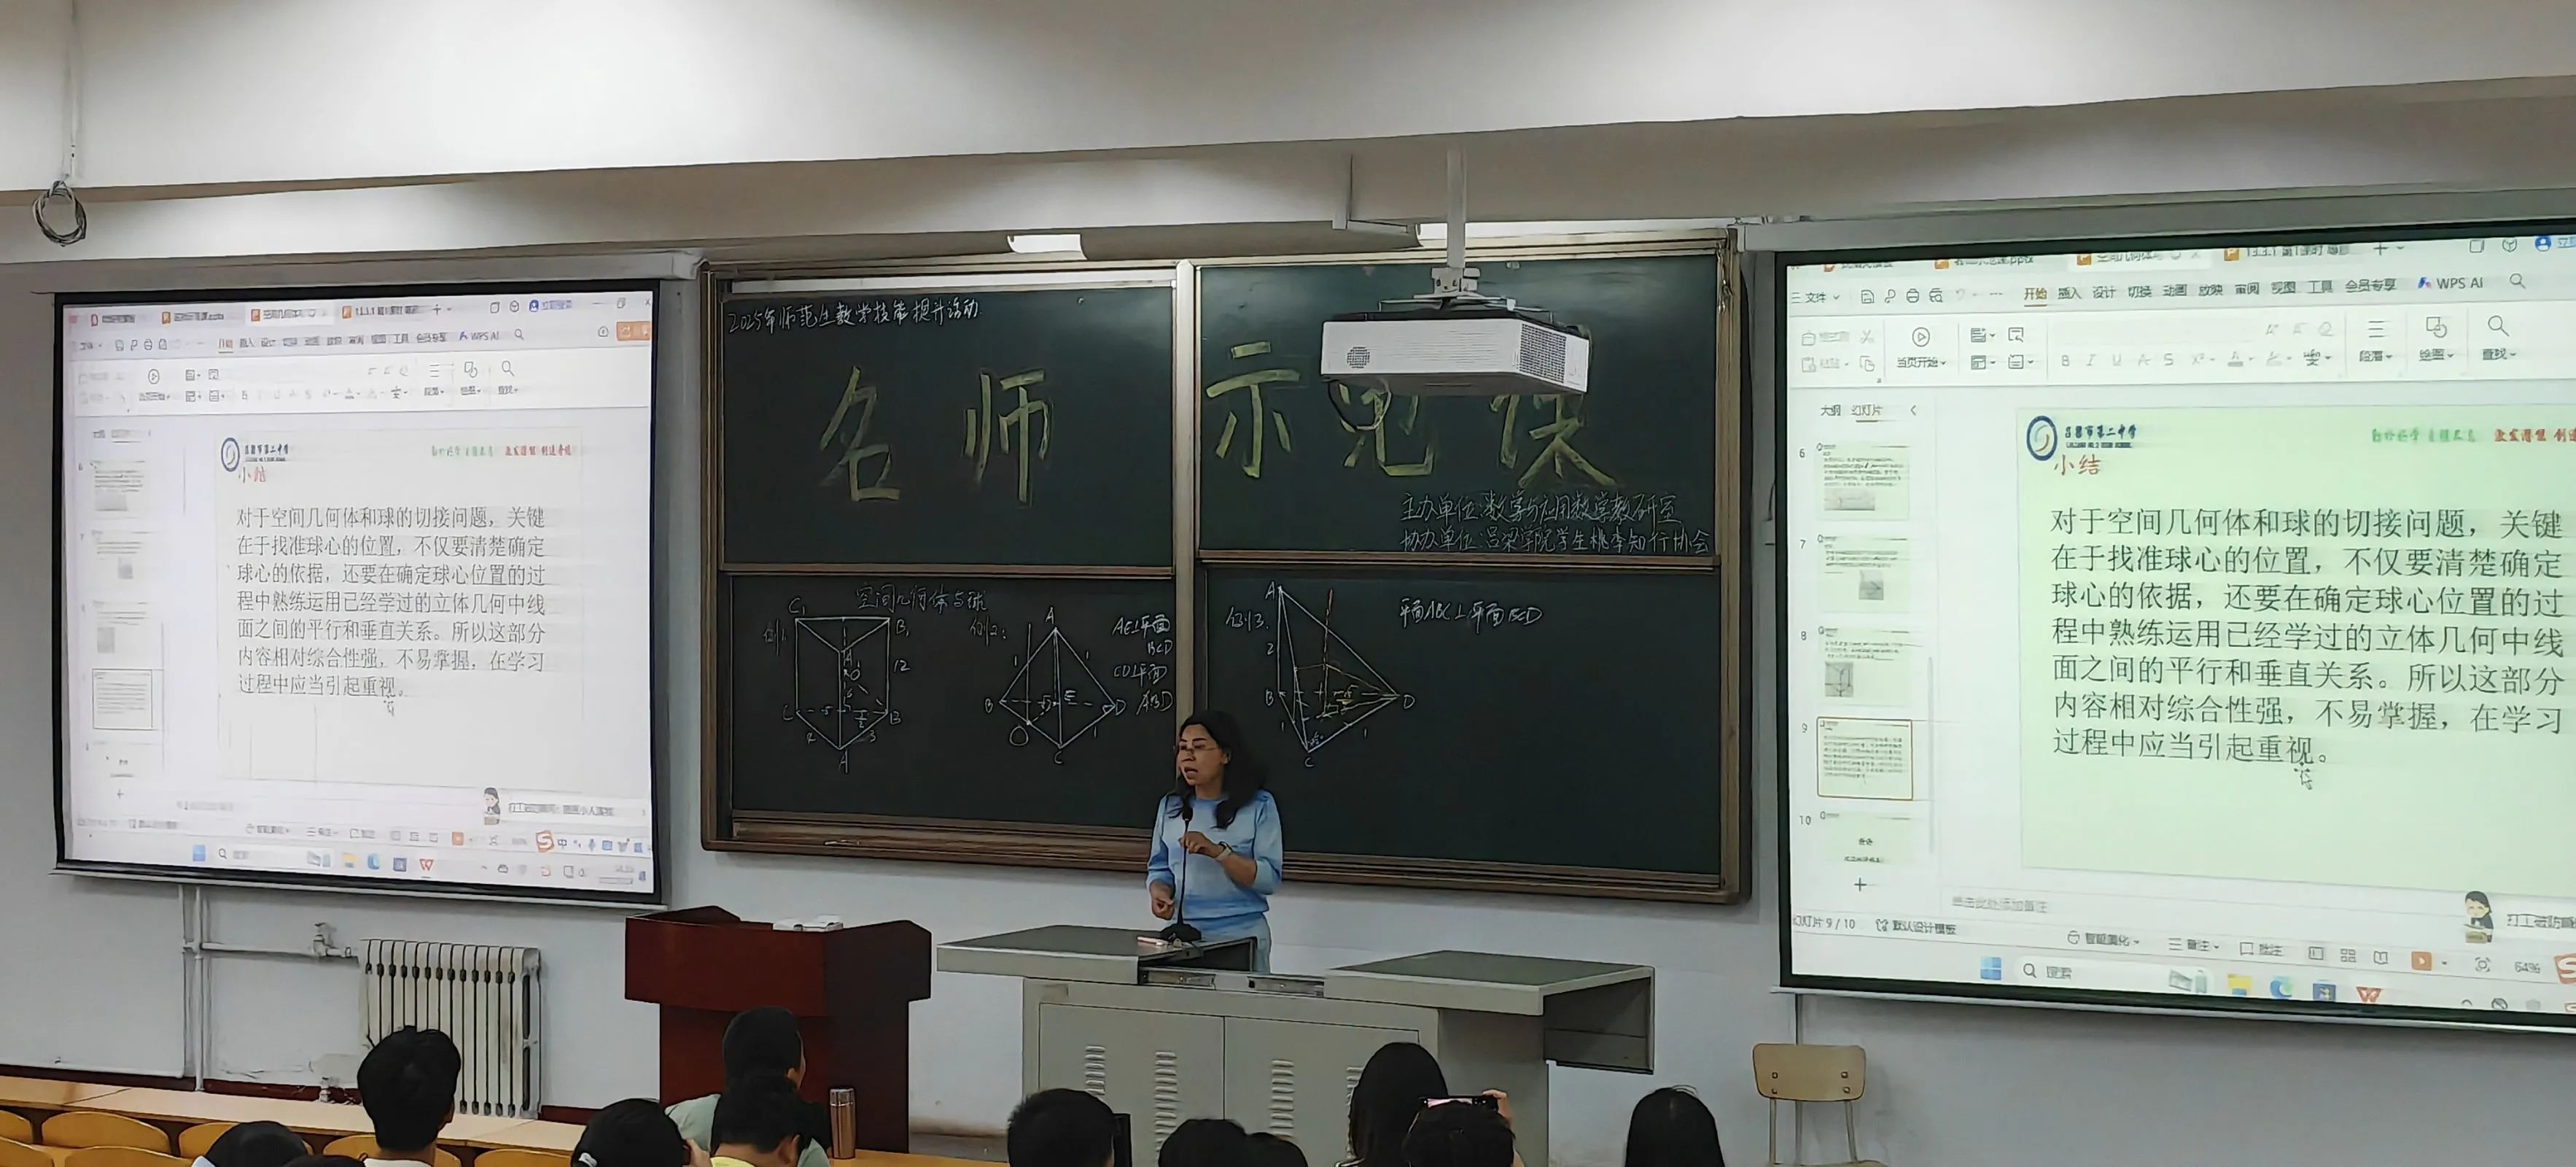 2025年师范生教学技能提升活动
名师示范课
主办单位:数学与应用数学教研室
协办单位:吕梁学院学生桃李知行协会
空间几何体与球
例1:
C₁
B₁
A₁
O
12
C
B
A
3
例2:
A
1
1
B
E
D
O
C
1
AE⊥平面
BCD
CD⊥平面
ABD
例3.
A
2
B
D
1
1
C
平面ABC⊥平面BCD
WPS AI
小结
对于空间几何体和球的切接问题，关键
在于找准球心的位置，不仅要清楚确定
球心的依据，还要在确定球心位置的过
程中熟练运用已经学过的立体几何中线
面之间的平行和垂直关系。所以这部分
内容相对综合性强，不易掌握，在学习
过程中应当引起重视。
文件
开始 插入 设计 切换 动画 放映 审阅 视图 工具 会员专享 WPS AI
当页开始
B I U A S X²
段落
绘图
查找
大纲 幻灯片
6
7
8
9
10
吕梁市第二中学
小结
对于空间几何体和球的切接问题，关键
在于找准球心的位置，不仅要清楚确定
球心的依据，还要在确定球心位置的过
程中熟练运用已经学过的立体几何中线
面之间的平行和垂直关系。所以这部分
内容相对综合性强，不易掌握，在学习
过程中应当引起重视。
单击此处添加备注
幻灯片 9 / 10 默认设计模板
智能美化 备注 批注
64%
搜索